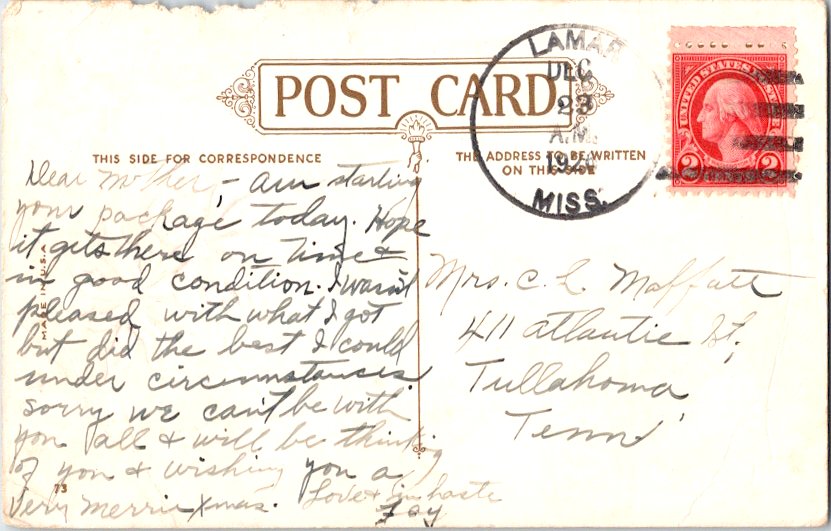 POST CARD
THIS SIDE FOR CORRESPONDENCE
THE ADDRESS TO BE WRITTEN
ON THIS SIDE
LAMAR
DEC
23
A.M.
MISS.
UNITED STATES POSTAGE
2 2
Dear Mother, - am starting
your package today. Hope
it gets there on time &
in good condition. I wasn't
pleased with what I got
but did the best I could
under circumstances
sorry we can't be with
you all & will be thinking
of you & wishing you a
Very Merrie Xmas. Love & in haste
Fay
MADE IN U.S.A.
73
Mrs. C. L. Maffatt
411 Atlantic St,
Tullahoma
Tenn